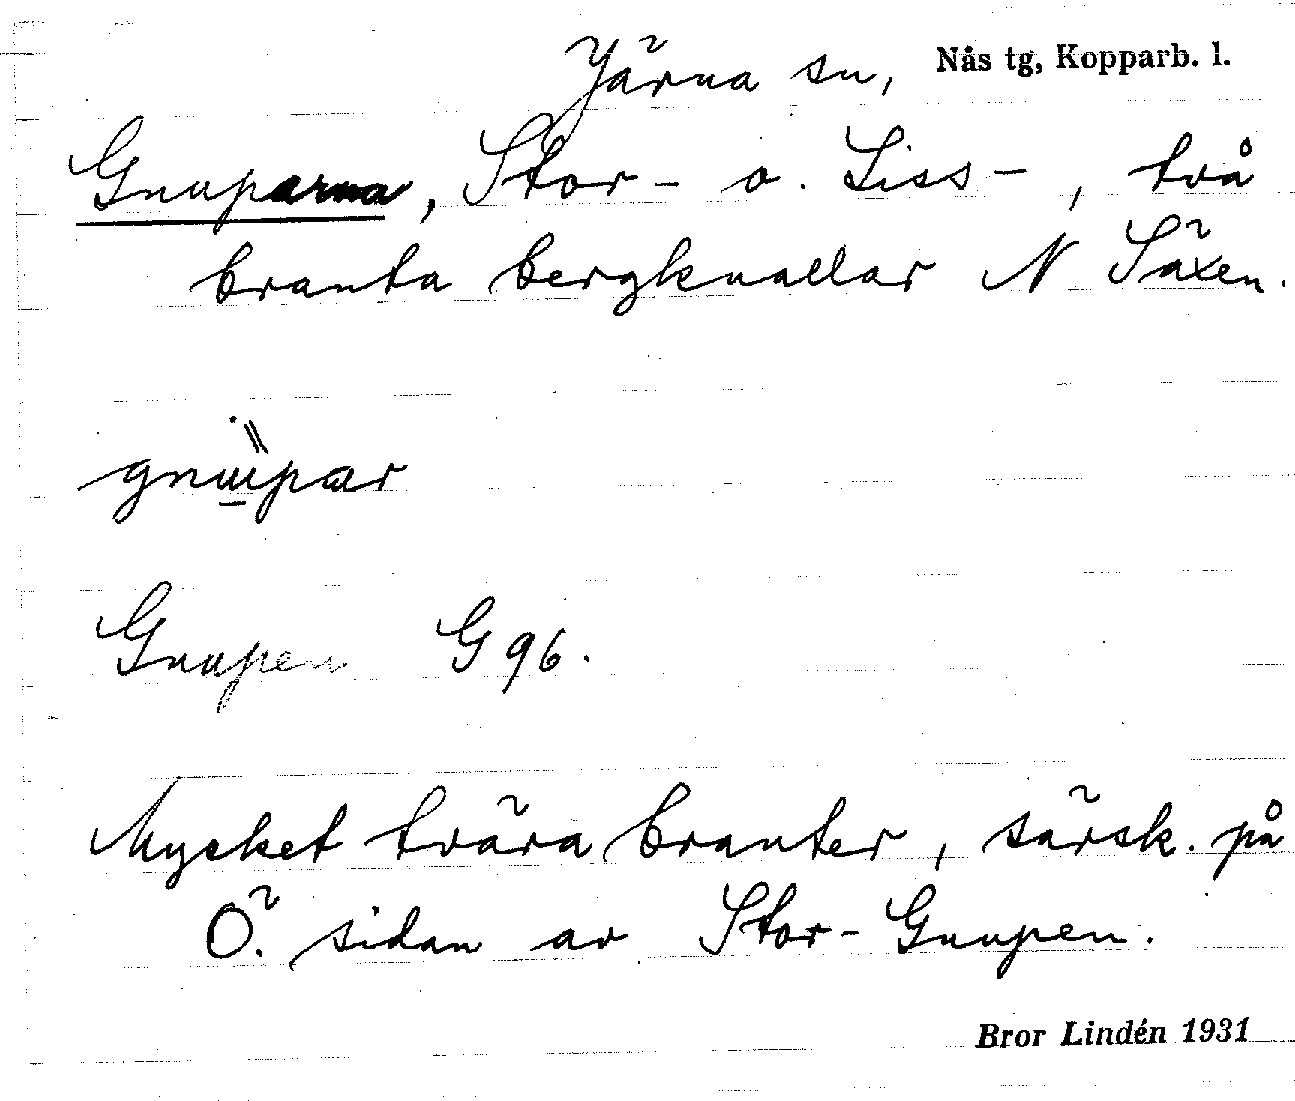 Järna sn, Nås tg, Kopparb. l.
Gnuparna, Stor- o. Liss-, två
branta bergknallar N Säxen.
gnupar
Gnupen G 96.
Mycket tvära branter, särsk. på
Ö. sidan av Stor-Gnupen.
Bror Lindén 1931